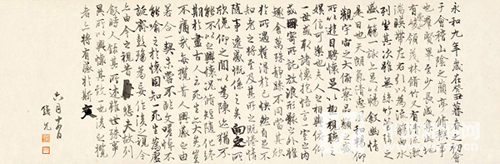 永和九年歲在癸丑暮春之初
于會稽山陰之蘭亭脩禊事
也羣賢畢至少長咸集此地
有崇山峻領茂林脩竹又有清流激
湍暎帶左右引以為流觴曲水
列坐其次雖無絲竹管弦之
盛一觴一詠亦足以暢敘幽情
是日也天朗氣清惠風和暢仰
觀宇宙之大俯察品類之盛
所以遊目騁懷足以極視聽之
娛信可樂也夫人之相與俯仰
一世或取諸懷抱悟言一室之內
或因寄所託放浪形骸之外雖
趣舍萬殊靜躁不同當其欣
於所遇蹔得於己快然自足不
知老之將至及其所之既惓情
隨事遷感慨係之矣向之所
欣俛仰之閒以為陳迹猶不
能不以之興懷況脩短隨化終
期於盡古人云死生亦大矣豈
不痛哉每攬昔人興感之由
若合一契未嘗不臨文嗟悼不
能喻之於懷固知一死生為虛
誕齊彭殤為妄作後之視今
亦由今之視昔悲夫故列
敘時人錄其所述雖世殊事
異所以興懷其致一也後之攬
者亦將有感於斯文
六月十四日